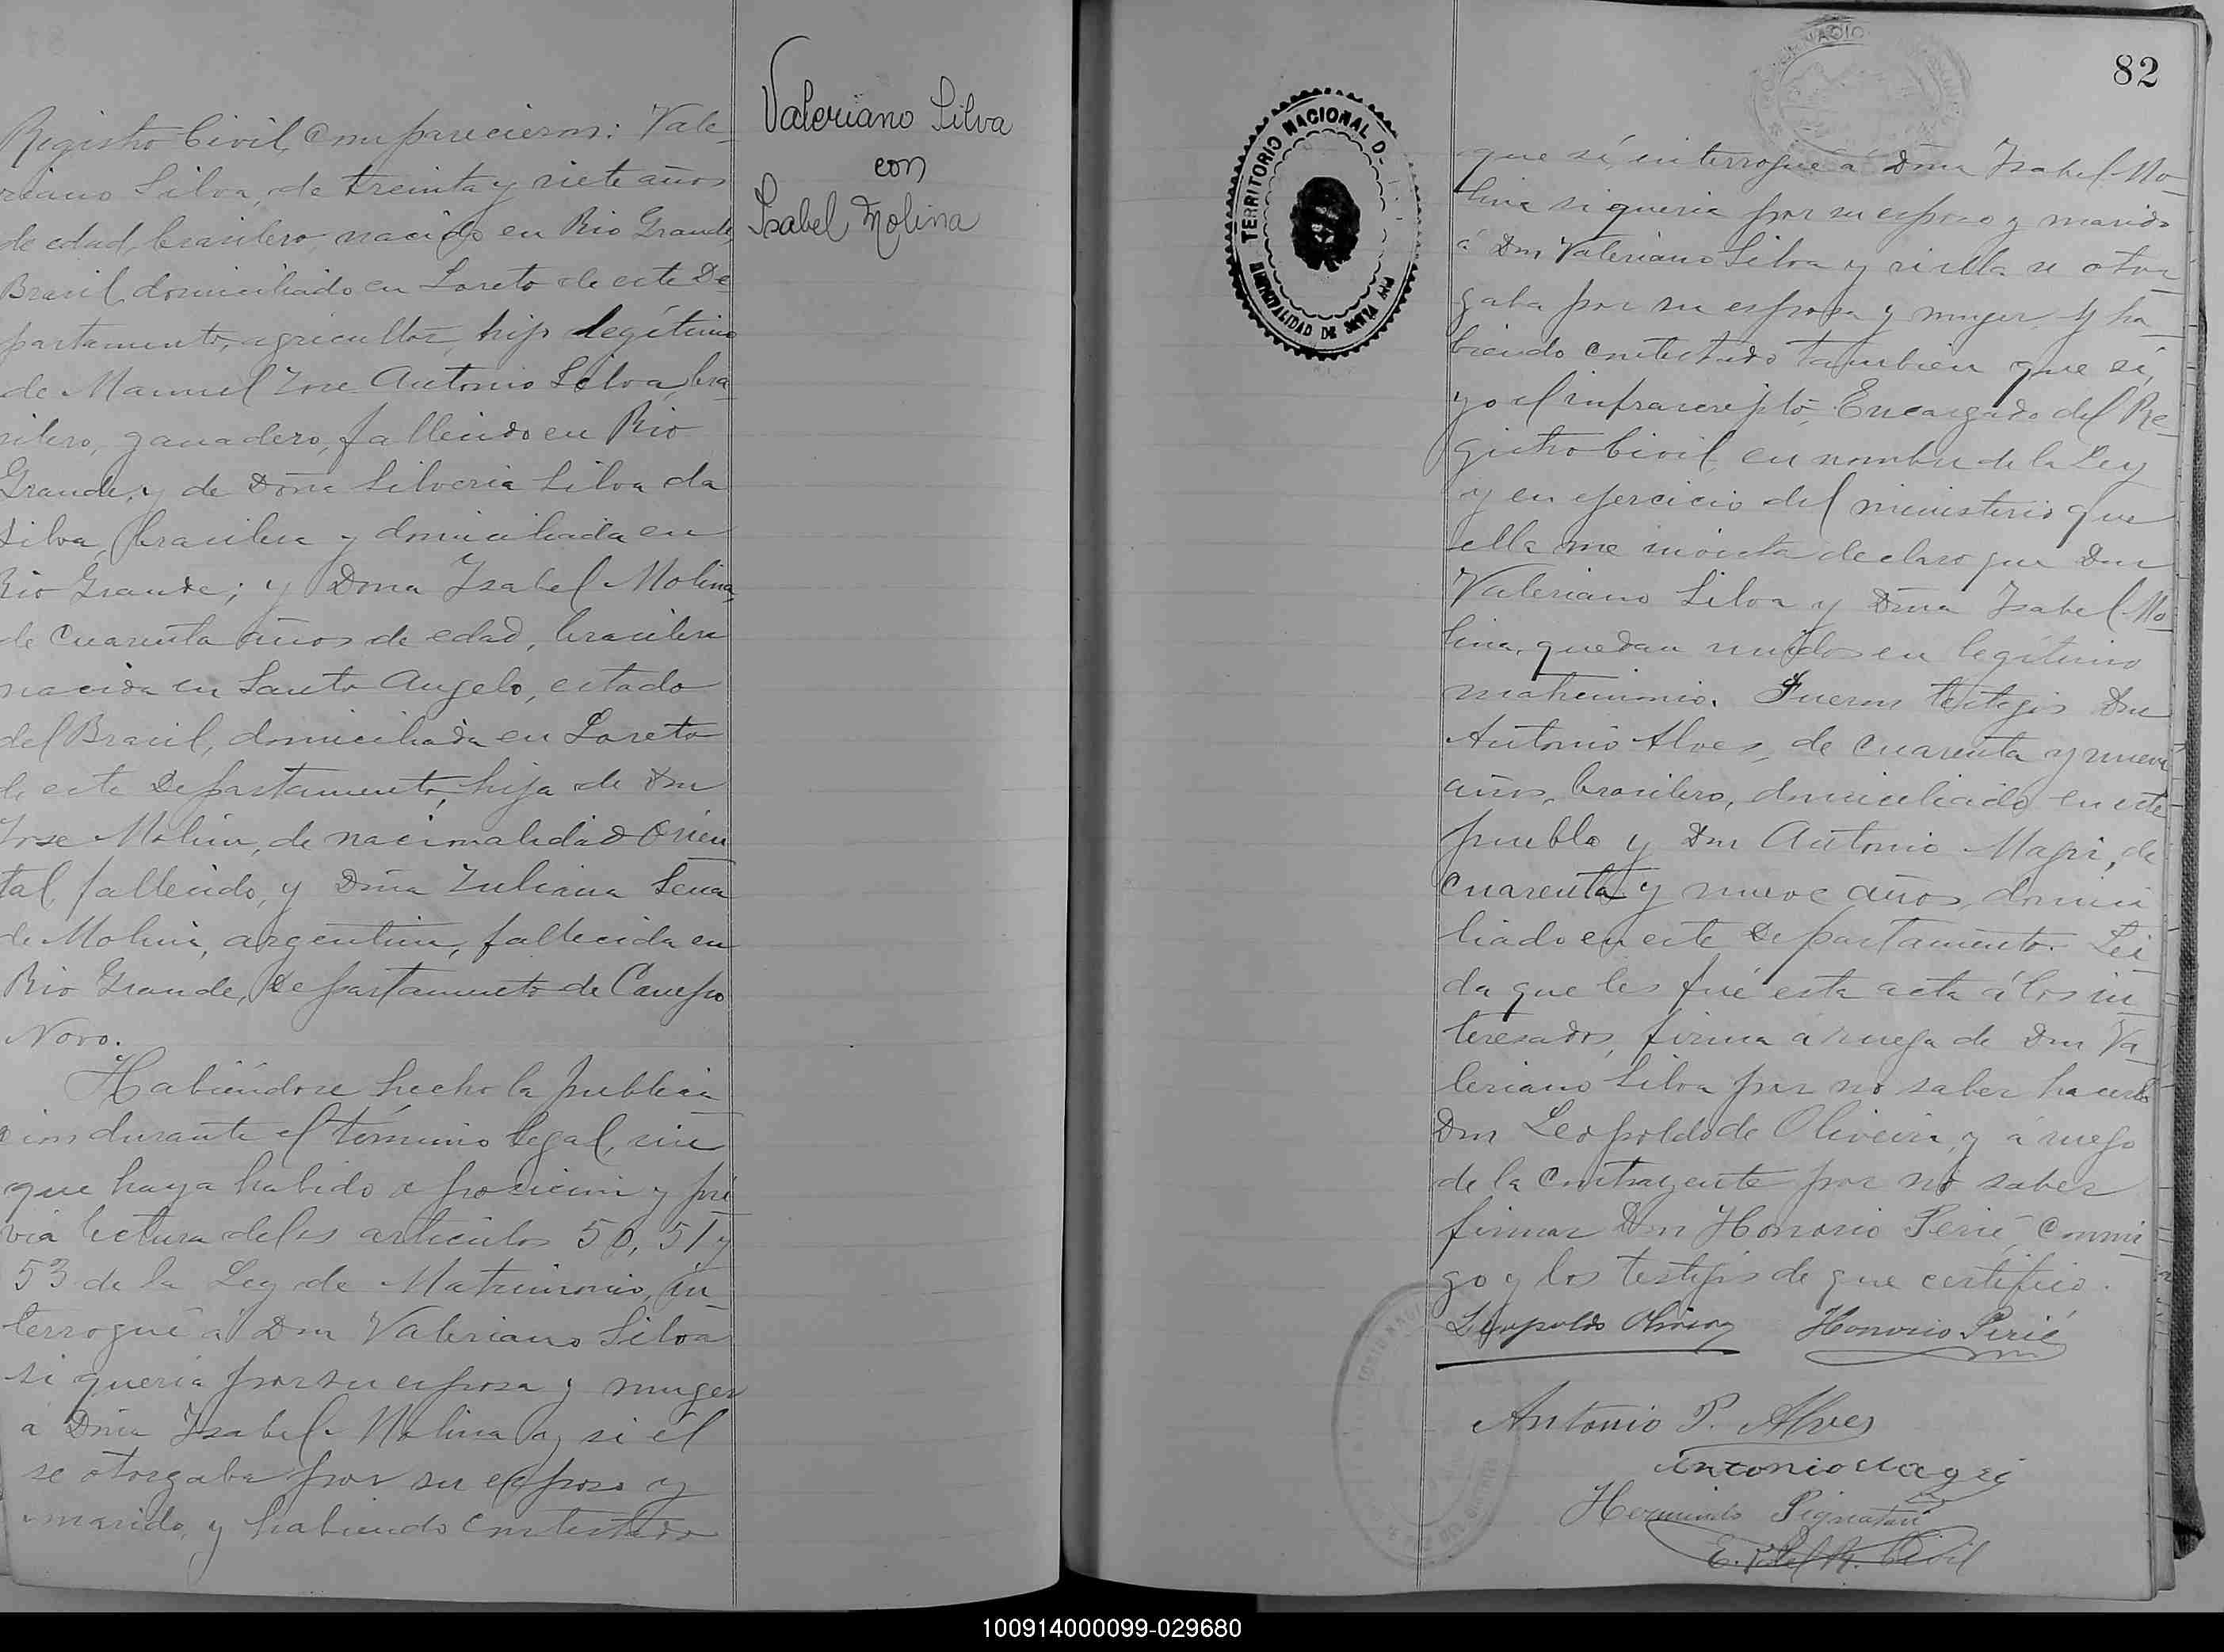 Registro Civil, comparecieron: Vale-
riano Silva, de treinta y siete años
de edad, brasilero, nacido en Rio Grande,
Brasil, domiciliado en Loreto de este De-
partamento, agricultor, hijo legítimo
de Manuel Jose Antonio Silva, bra-
silero, ganadero, fallecido en Rio
Grande, y de Doña Silveria Silva da
Silva, brasilera y domiciliada en
Rio Grande; y Doña Isabel Molina,
de cuarenta años de edad, brasilera
nacida en Santo Angelo, estado
del Brasil, domiciliada en Loreto
de este Departamento, hija de Don
Jose Molina, de nacionalidad Orien
tal, fallecido, y Doña Juliana Sena
de Molina, argentina, fallecida en
Rio Grande, Departamento de Campo
Novo.
Habiéndose hecho la publica-
cion durante el término legal, sin
que haya habido oposicion y pré-
via lectura de los artículos 50, 51 y
53 de la Ley de Matrimonio, in-
terrogué á Don Valeriano Silva
si queria por su esposa y muger
a Doña Isabel Molina y si él
se otorgaba por su esposo y
marido, y habiendo contestado
Valeriano Silva
con
Isabel Molina
82
TERRITORIO NACIONAL D
MUNICIPALIDAD DE SANTA ANA
que sí, interrogué á Doña Isabel Mo-
lina si queria por su esposo y marido
á Don Valeriano Silva y si ella se otor-
gaba por su esposa y muger. Y ha-
biendo contestado tambien que sí,
yo el infrascripto, Encargado del Re-
gistro Civil, en nombre de la Ley
y en ejercicio del ministerio que
ella me inviste declaro que Don
Valeriano Silva y Doña Isabel Mo-
lina, quedan unidos en legítimo
matrimonio. Fueron testigos Don
Antonio Alves, de cuarenta y nueve
años, brasilero, domiciliado en este
pueblo y Don Antonio Magri, de
cuarenta y nueve años, domici
liado en este Departamento. Lei-
da que les fué esta acta á los in-
teresados, firma á ruego de Don Va-
leriano Silva por no saber hacerlo
Don Leopoldo de Oliveira, y á ruego
de la contrayente por no saber
firmar Don Honorio Perié, conmi-
go y los testigos de que certifico.
Leopoldo Oliveira Honorio Perié
Antonio P. Alves
Antonio Magri
Herminio Pignatari
E. del R. Civil
100914000099-029680